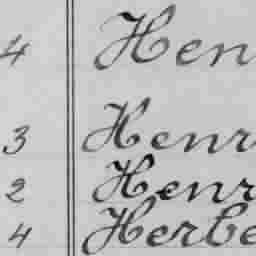 4 Hen
3 Henr
2 Henr
4 Herbe